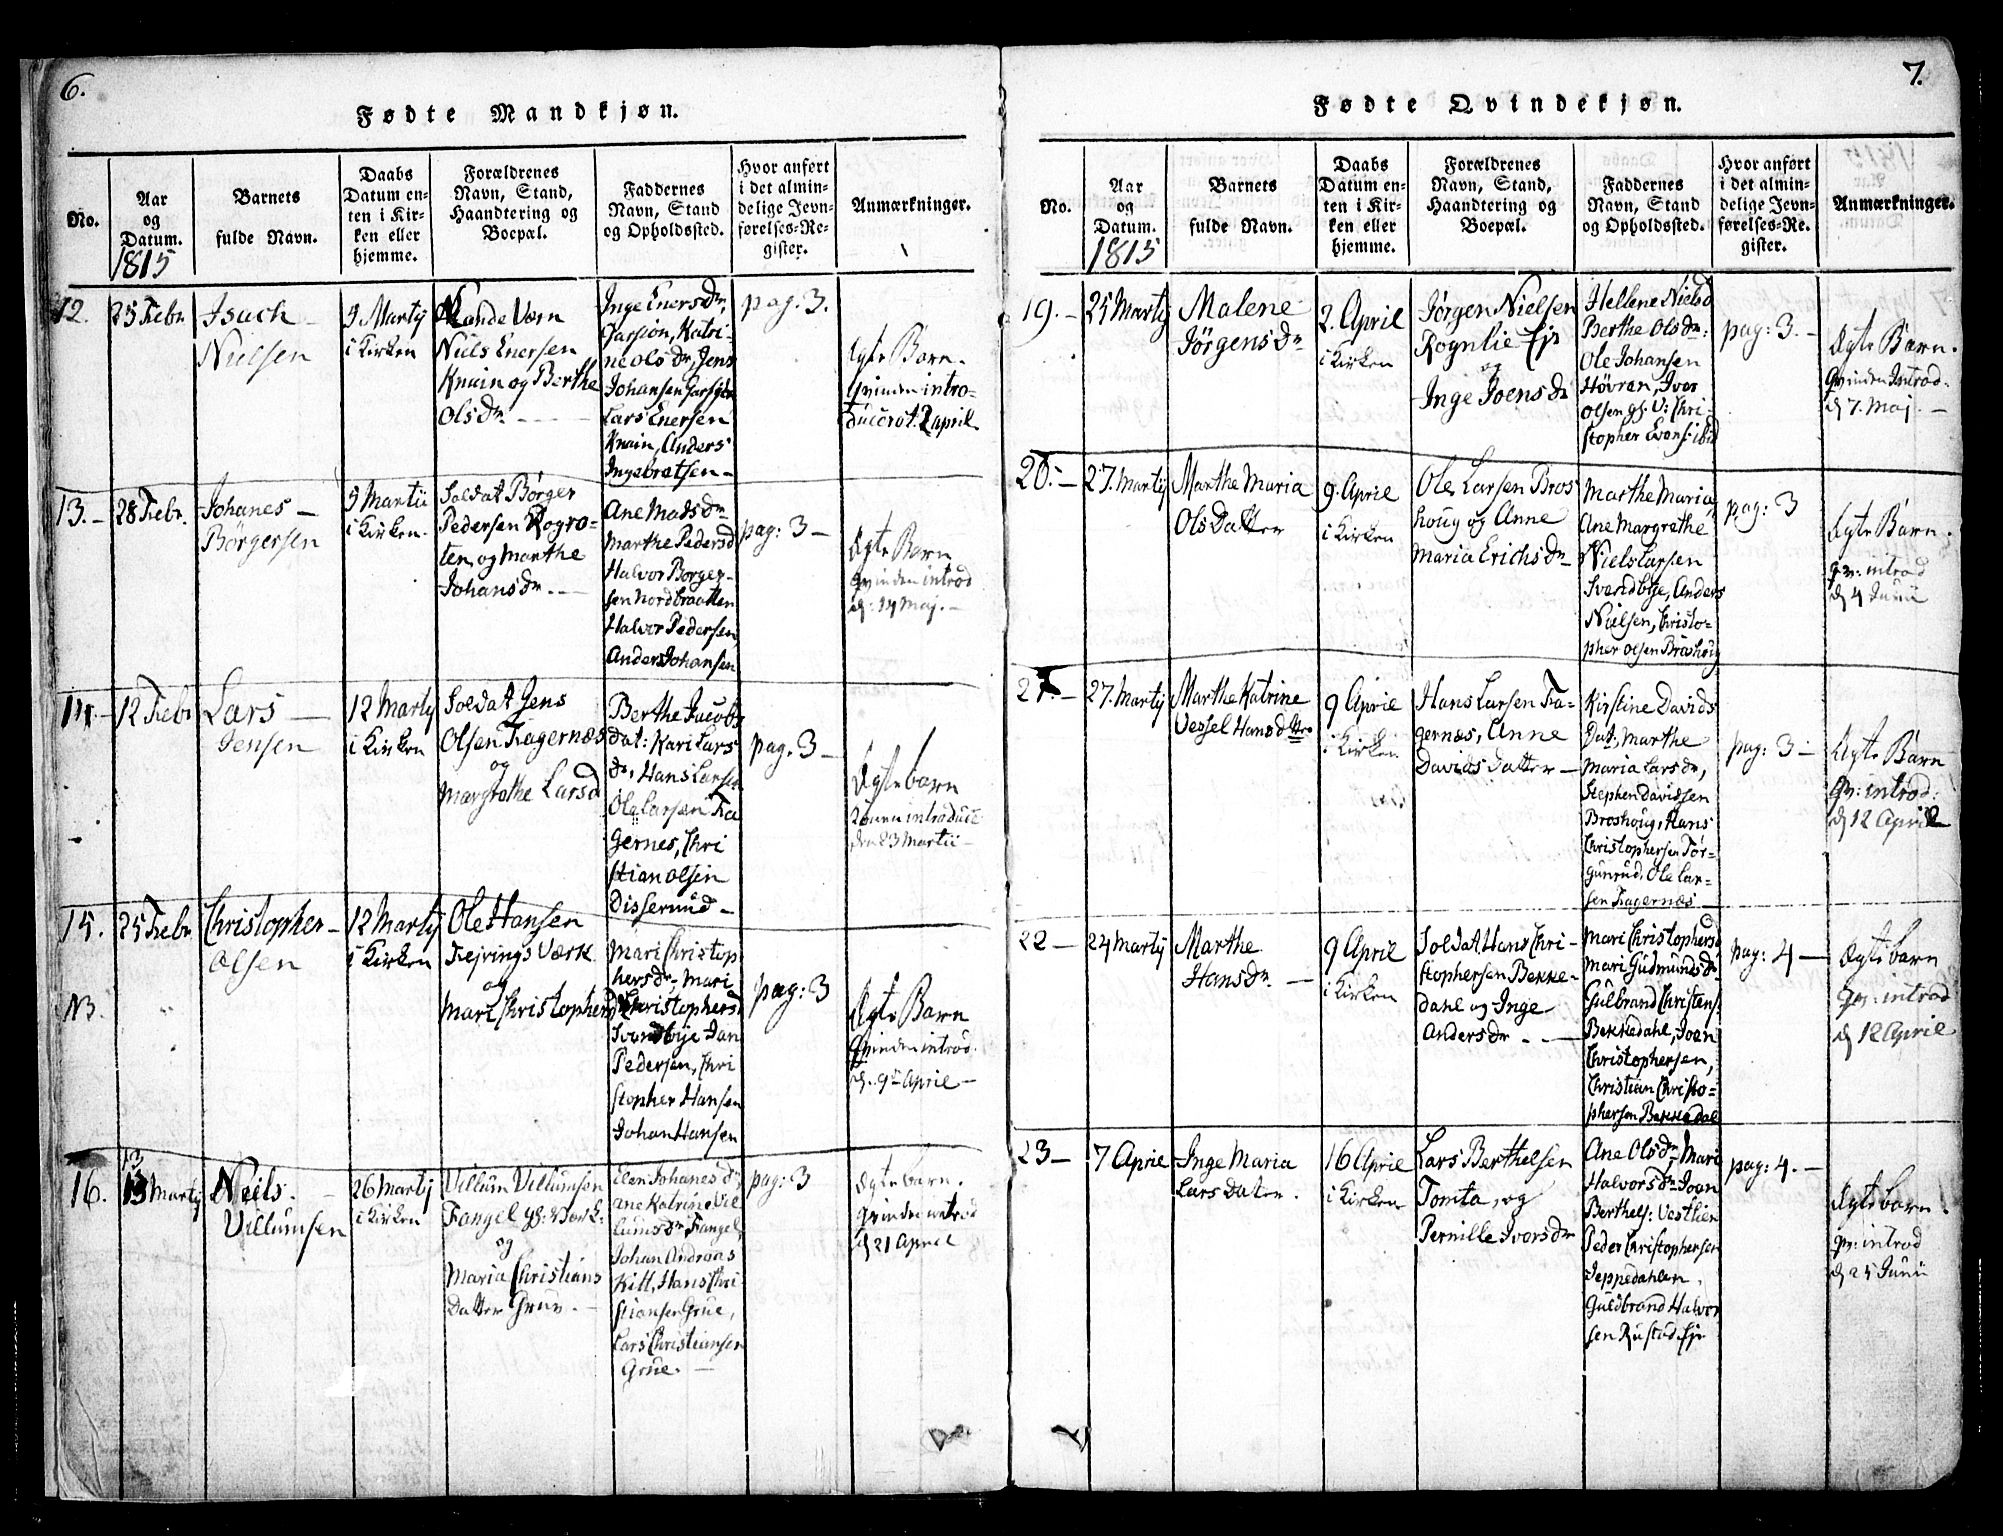 6.
Fødte Mandkjøn.
No.
Aar
og
Datum.
1815
Barnets
fulde Navn.
Daabs
Datum en-
ten i Kir-
ken eller
hjemme.
Forældrenes
Navn, Stand,
Haandtering og
Boepæl.
Faddernes
Navn, Stand
og Opholdssted.
Hvor anført
i det almin-
delige Jevn-
førelses-Re-
gister.
Anmærkninger.
12.
25 Febr.
Isach
Nielsen
5 Martij
i Kirken
Niels Enersen
Knain og Berthe
Olsdr
Inge Enersdr,
Katri-
ne Olsdr, Jens
Johansen
Lars Enersen
Knain, Anders
Ingebretsen
pag. 3.
Ægte Barn.
Qvinden intro-
duceret 2 april
13.
28 Febr.
Johanes
Børgersen
5 Martii
i Kirken.
Soldat Børger
Pedersen Rogro-
ten, og Marthe
Johansdr.
Ane Madsdr
Marthe Pedersd
Halvor Børger-
sen Nordbraatten
Halvor Pedersen,
Anders Johansen
pag: 3
Ægte Barn
Qvinden introd
d: 14 Maj.
14.
12 Febr
Lars
Jensen
12 Martij
i Kirken
Soldat Jens
Olsen Fagernæs
og
Margrethe Larsd
Berthe Jacobs
dat: Kari Lars
dr, Hans Larsen
Ole Larsen Fa
gernes, Chri
stian Olsen
Disserud
pag. 3
Ægte barn
introduc
den 23 Martii
15.
N3.
25 Febr
Christopher
Olsen
12 Martij
i Kirken
Ole Hansen
Fejrings Værk
og
Mari Christophersd
Mari Christop
hersdr, Mari
Christophersd
Svendbye Jan
Pedersen, Chri
stopher Hansen
Johan Hansen
pag: 3
Ægte Barn
Qvinden introd.
d. 9de April
16.
13
13 Martij
Niels
Villumsen
26 Martij
i Kirken
Villum Villumsen
Fangel gs: Værk:
og
Maria Christians
Datter Gruv.
Elen Johanesd,
Ane Katrine Vil
lumsdr Fangel,
Johan Andreas
Kitt, Hans Chri
stiansen Grue,
Lars Christiansen
Grue.
pag: 3
Ægte barn.
Qvinden introd
d 21 April
7.
Fødte Qvindekjøn.
No.
Aar
og
Datum.
1815
Barnets
fulde Navn.
Daabs
Datum en-
ten i Kir-
ken eller
hjemme.
Forældrenes
Navn, Stand,
Haandtering og
Boepæl.
Faddernes
Navn, Stand
og Opholdssted.
Hvor anført
i det almin-
delige Jevn-
førelses-Re-
gister.
Anmærkninger.
19.
25 Martij
Malene
Jörgensdr
2. April
i Kirken
Jörgen Nielsen
Rognlie Ejr
og
Inge Joensdr
Hellene Nielsd
Berthe Olsdr:
Ole Johansen
Hövran, Iver
Olsen gs. V: Chri-
stopher Evens: ibid
pag: 3.
Ægte Barn.
Qvinden Introd.
d 7. Maj.
20.
27. Martij
Marthe Maria
Ols Datter
9. April
i Kirken
Ole Larsen Bros
houg og Anne
Maria Erichsdr
Marthe Maria,
Ane Margrethe
Niels Larsen
Svendbye, Anders
Nielsen, Christo-
pher Olsen Broshoug
pag: 3
Ægte Barn.
Qv: introd
d 4 Junii
21.
27. Martij
Marthe Katrine
Vessel Hansdtr.
9 April
i Kirken
Hans Larsen Fa-
gernæs, Anne
Davids Datter
Kirstine Davids
Dat, Marthe
Maria Larsdr,
Stephen Davidsen
Broshoug, Hans
Christophersen Tor-
gunrud, Ole Lar-
sen Fagernæs
pag: 3
Ægte Barn
Qv: introd:
d 12 April
22
24 Martij
Marthe
Hansdr.
9 April
i Kirken
Soldat Hans Chri-
stophersen Bekke-
dahl og Inge
Andersdr
Mari Christophersd
Mari Gudmundsdr
Gulbrand Christens:
Bekkedahl, Joen
Christophersen,
Christian Christo-
phersen Bekkedal
pag: 4
Ægte barn
Qv: introd
d 12 April
23
7 April
Inge Maria
Lars Dater.
16 April
i Kirken
Lars Berthelsen
Tomta, og
Pernille Iversdr
Ane Olsdr, Mari
Halvorsdr Joen
Berthels: Vestlien
Peder Christophersen
Jeppedahlen.
Guldbrand Halvor
sen Rustad Ejr
pag: 4.
Ægte barn.
Qv: introd
d 25 Junii